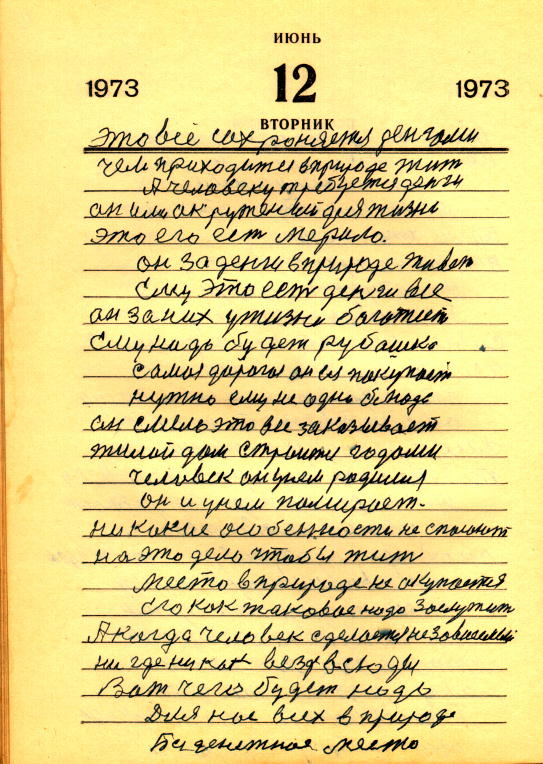 ИЮНЬ
1973 12 1973
ВТОРНИК
Это всё сохроняется денгами
чем приходится в природе жит
А человеку требуется денги
он ими окруженый для жизни
это его ест мерило.
он за денги в природе живет
ему это ест денги все
он за них у жизни богатиет
ему надь будет рубашка
самая дорогая он ея покупает
нужно ему не одно блюдо
он смело это все заказывает
жилой дом строит годами
человек он у нем родился
он и у нем помирает.
никакие особенности не
на это дело чтобы жит
место в природе не окупается
его как таковое надо заслужит
А когда человек сделается независемый
ни где ни как везде всюды
Вот чего будет надь
Для нас всех в природе
Безденежное место